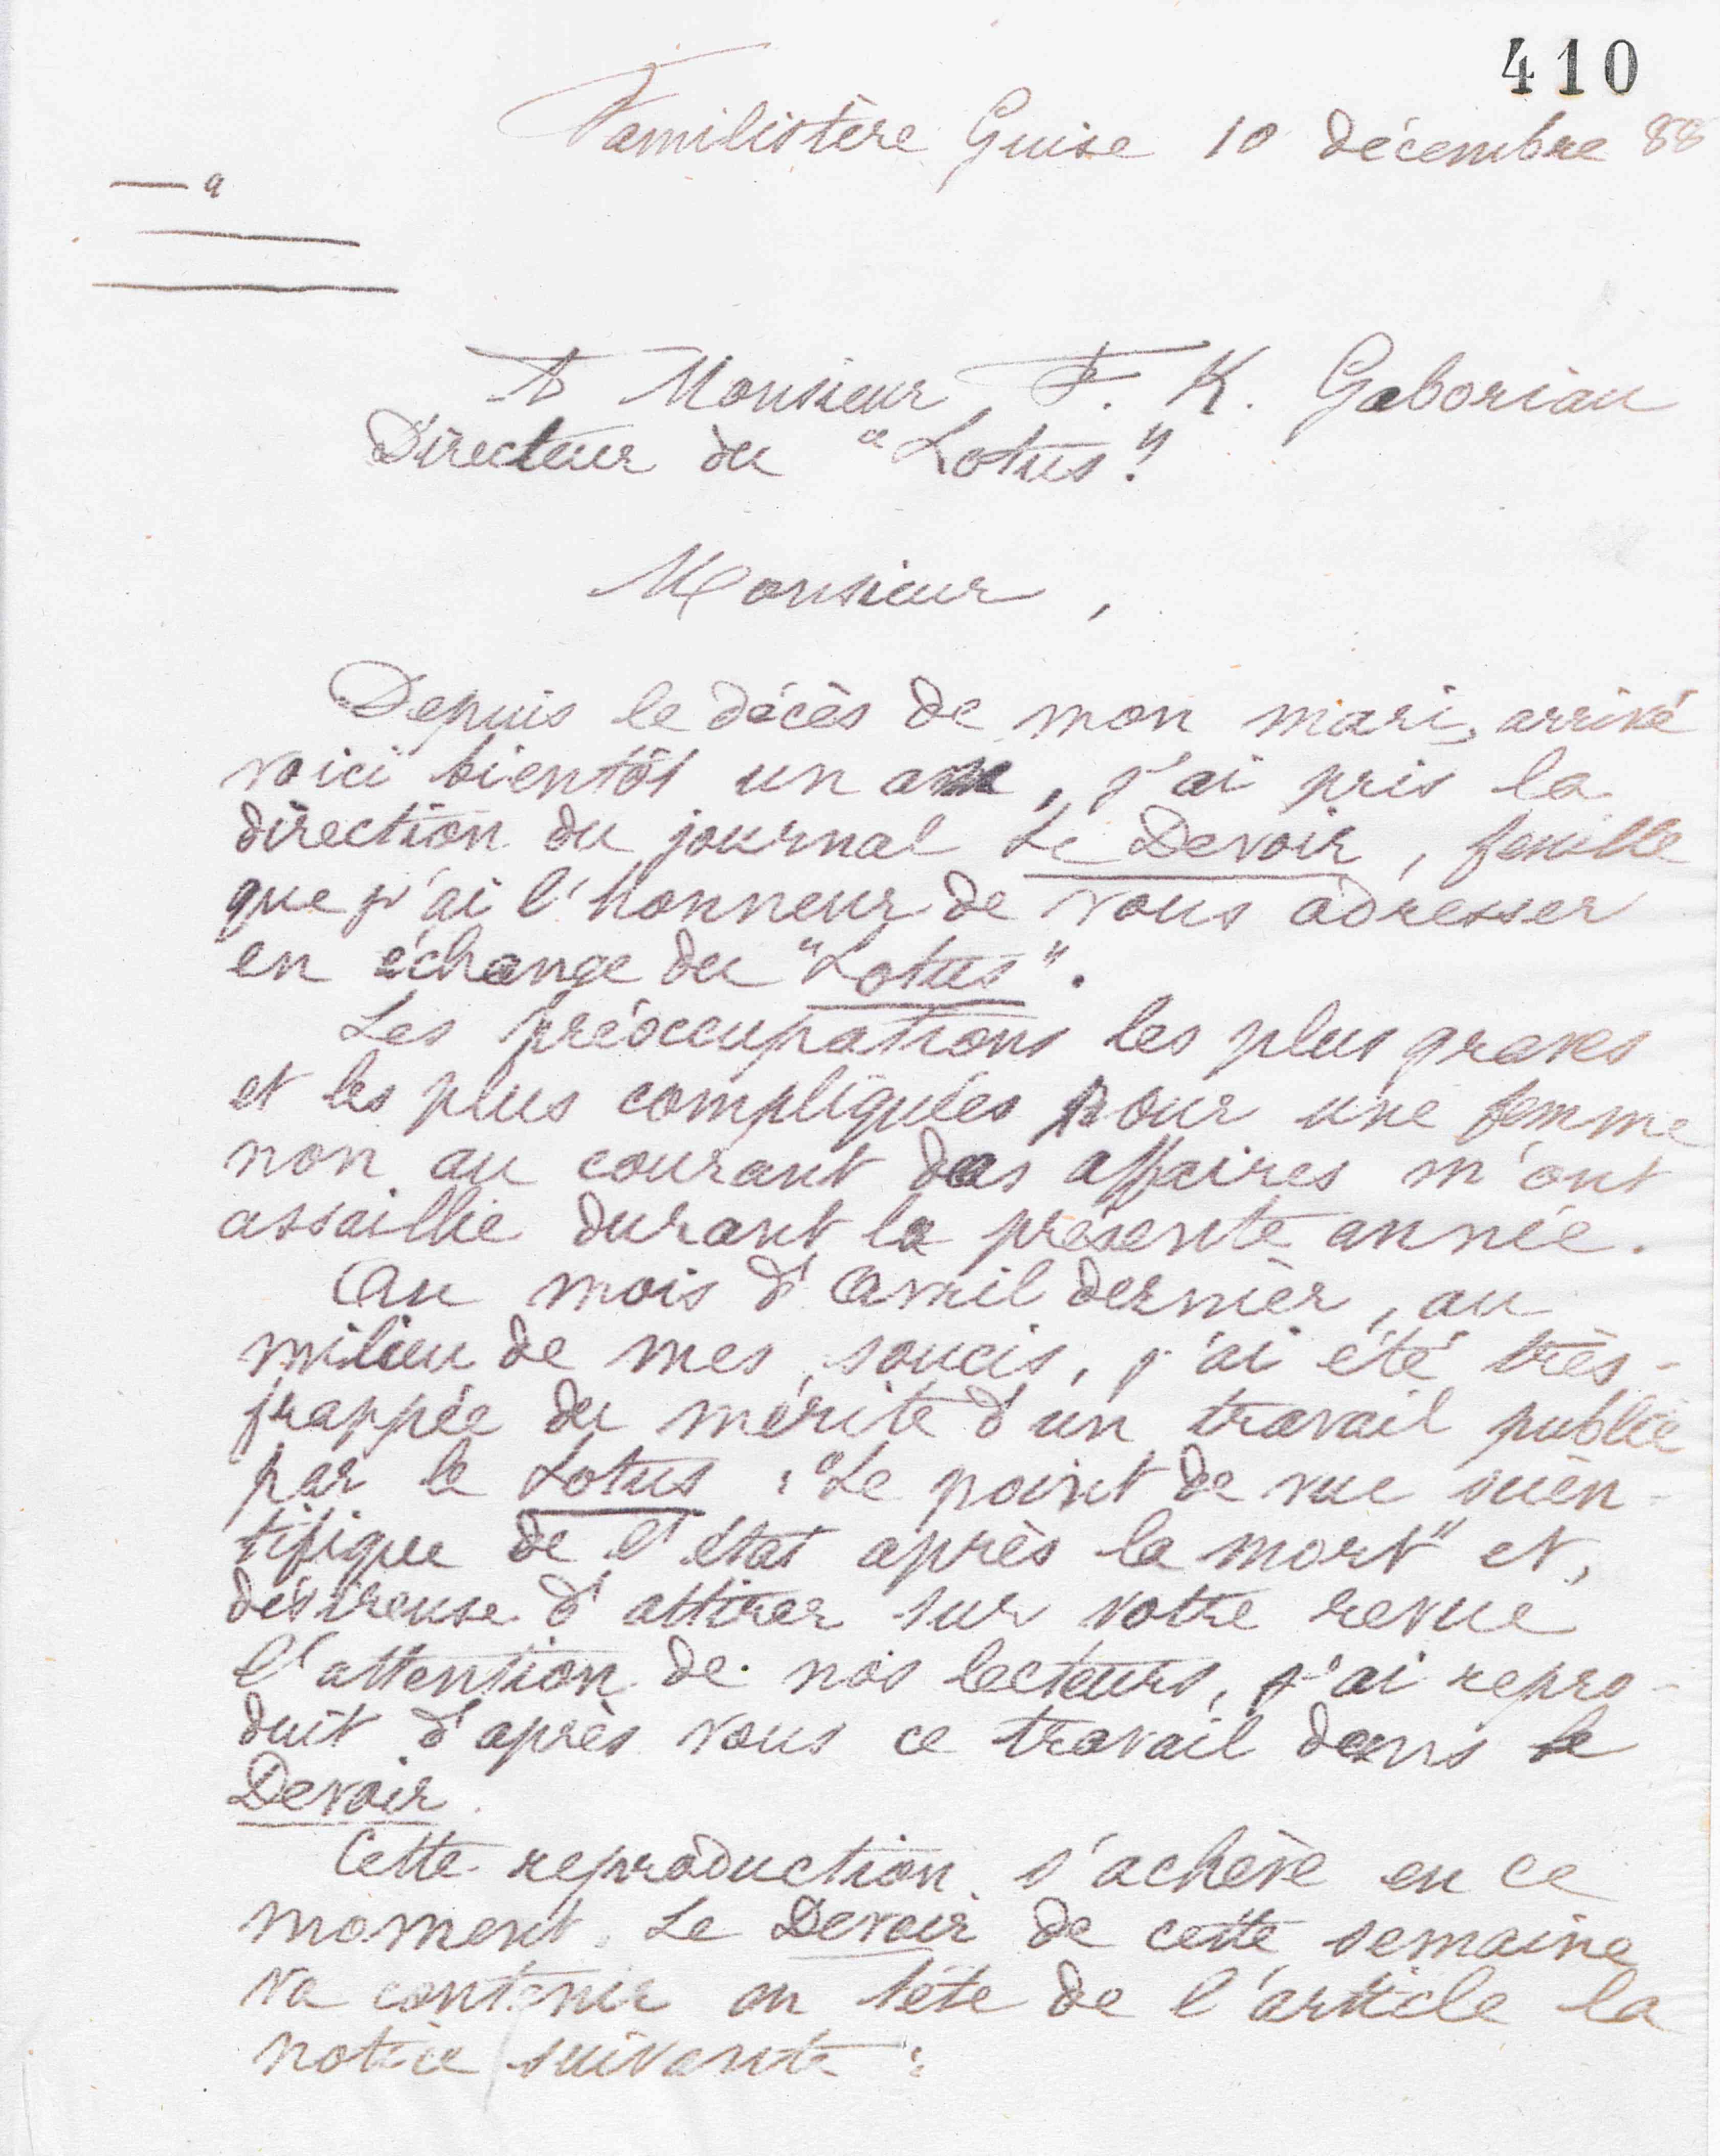 410
Familistère Guise 10 décembre 88
A Monsieur F. K. Gaboriau
Directeur du "Lotus".
Monsieur,
Depuis le décès de mon mari, arrivé
voici bientôt un an, j'ai pris la
direction du journal Le Devoir, feuille
que j'ai l'honneur de vous adresser
en échange du "Lotus".
Les préoccupations les plus graves
et les plus compliquées pour une femme
non au courant des affaires m'ont
assaillie durant la présente année.
Au mois d'Avril dernier, au
milieu de mes soucis, j'ai été très-
frappée du mérite d'un travail publié
par le Lotus : "Le point de vue scien-
tifique de l'état après la mort" et,
désireuse d'attirer sur votre revue
l'attention de nos lecteurs, j'ai repro-
duit d'après vous ce travail dans le
Devoir.
Cette reproduction s'achève en ce
moment. Le Devoir de cette semaine
va contenir en tête de l'article la
notice suivante :